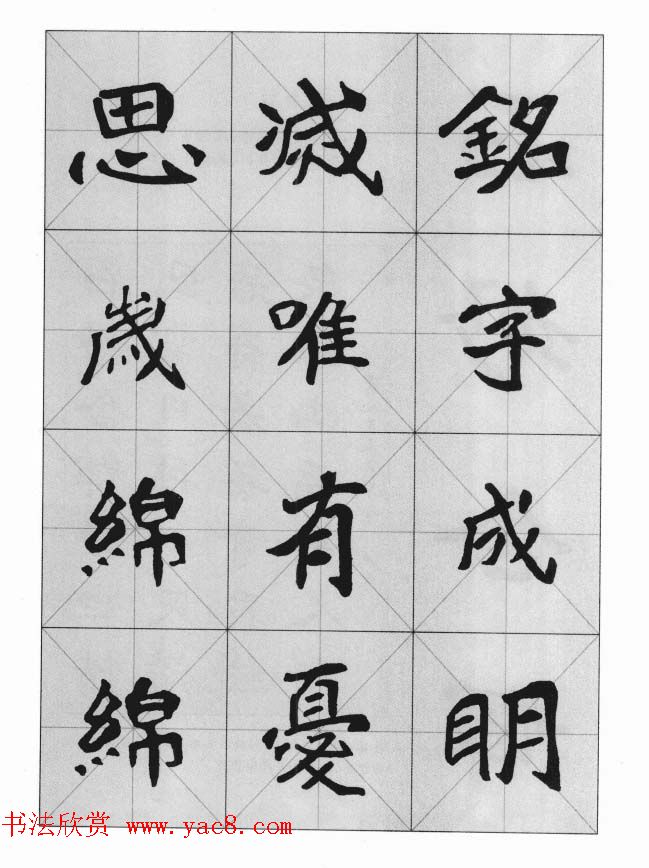 銘字成明
滅唯有憂
思歲綿綿
书法欣赏 www.yac8.com